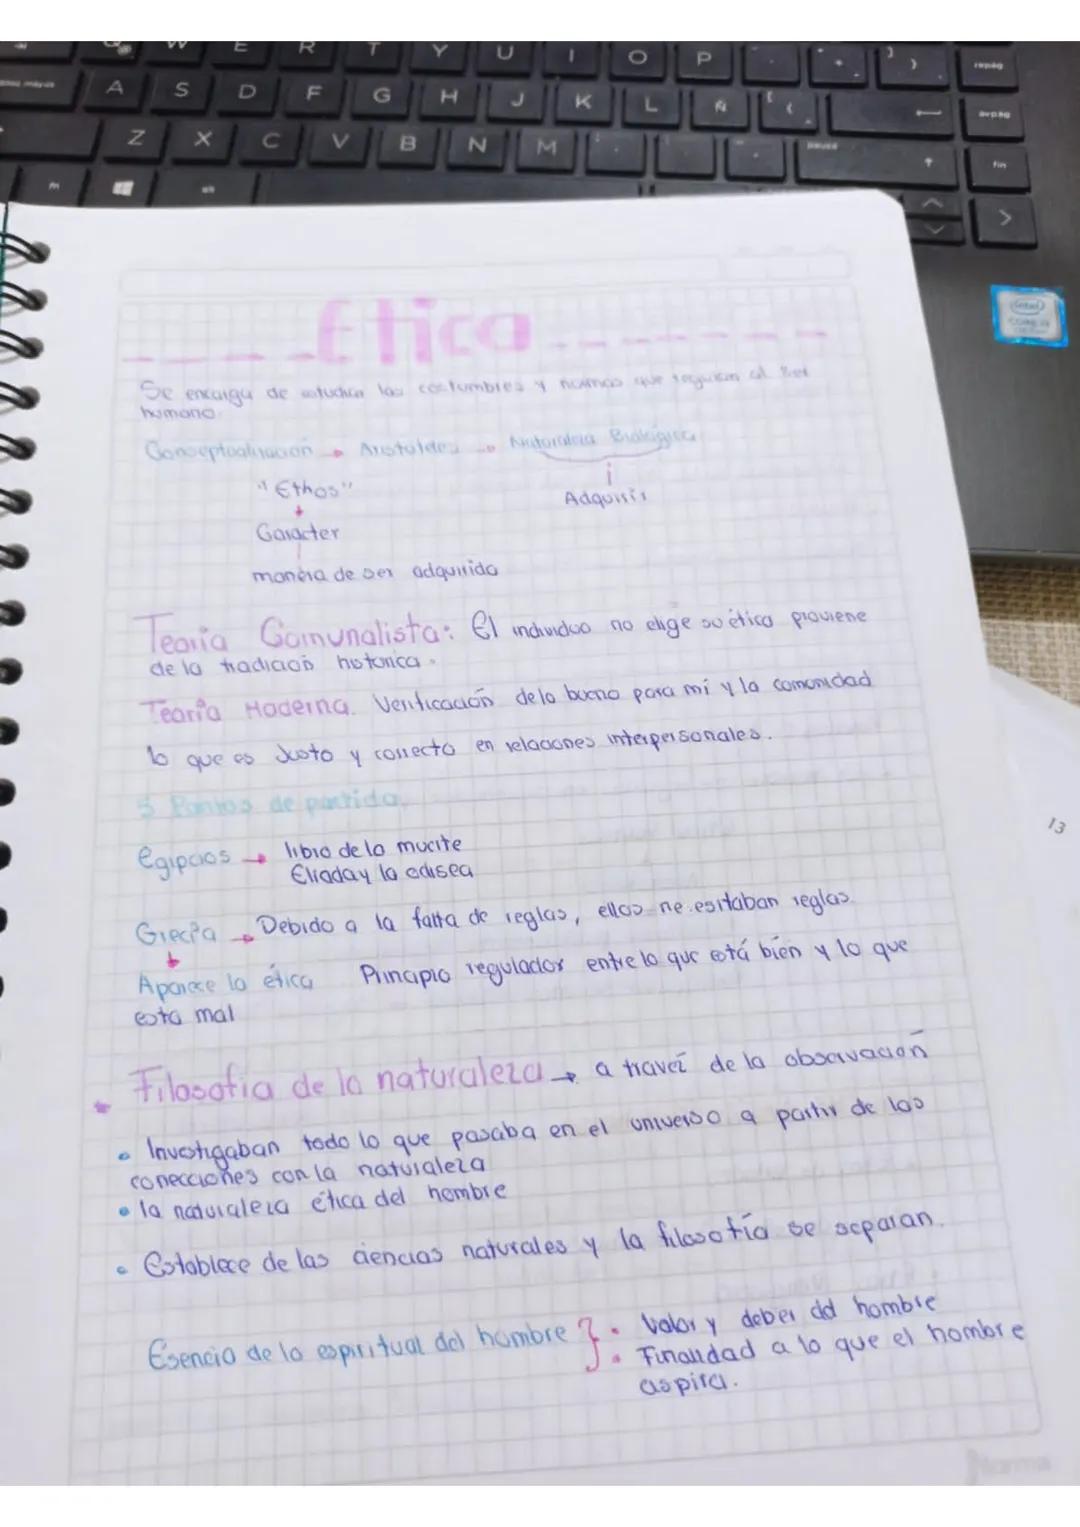 W E R T Y U I O P
repág
A S D F G H J K L Ñ
avpág
Z X C V B N M
pausa
fin
alt
intel
CORE i3
Etica
Se encarga de estudiar las costumbres y normas que regulan al ser
humano.
Conceptualización → Aristoteles → Naturaleza Biológica
"Ethos"
Adquirir
Caracter
manera de ser adquirida
Teoria Comunalista: El individuo no elige su ética proviene
de la tradición historica.
Teoría Moderna. Verificación de lo bueno para mí y la comunidad
lo que es Justo y correcto en relaciones interpersonales.
3 Puntos de partida.
Egipcios → libro de la muerte
Eliada y la odisea
Grecia → Debido a la falta de reglas, ellos necesitaban reglas.
Aparece la ética Principio regulador entre lo que está bien y lo que
esta mal
Filosofia de la naturaleza → a travez de la observación
• Investigaban todo lo que pasaba en el universo a partir de las
conecciones con la naturaleza
• la naturaleza ética del hombre
• Establece de las ciencias naturales y la filosofía se separan.
Esencia de lo espiritual del hombre } • Valor y deber del hombre
• Finalidad a lo que el hombre
aspira.
Norma
13